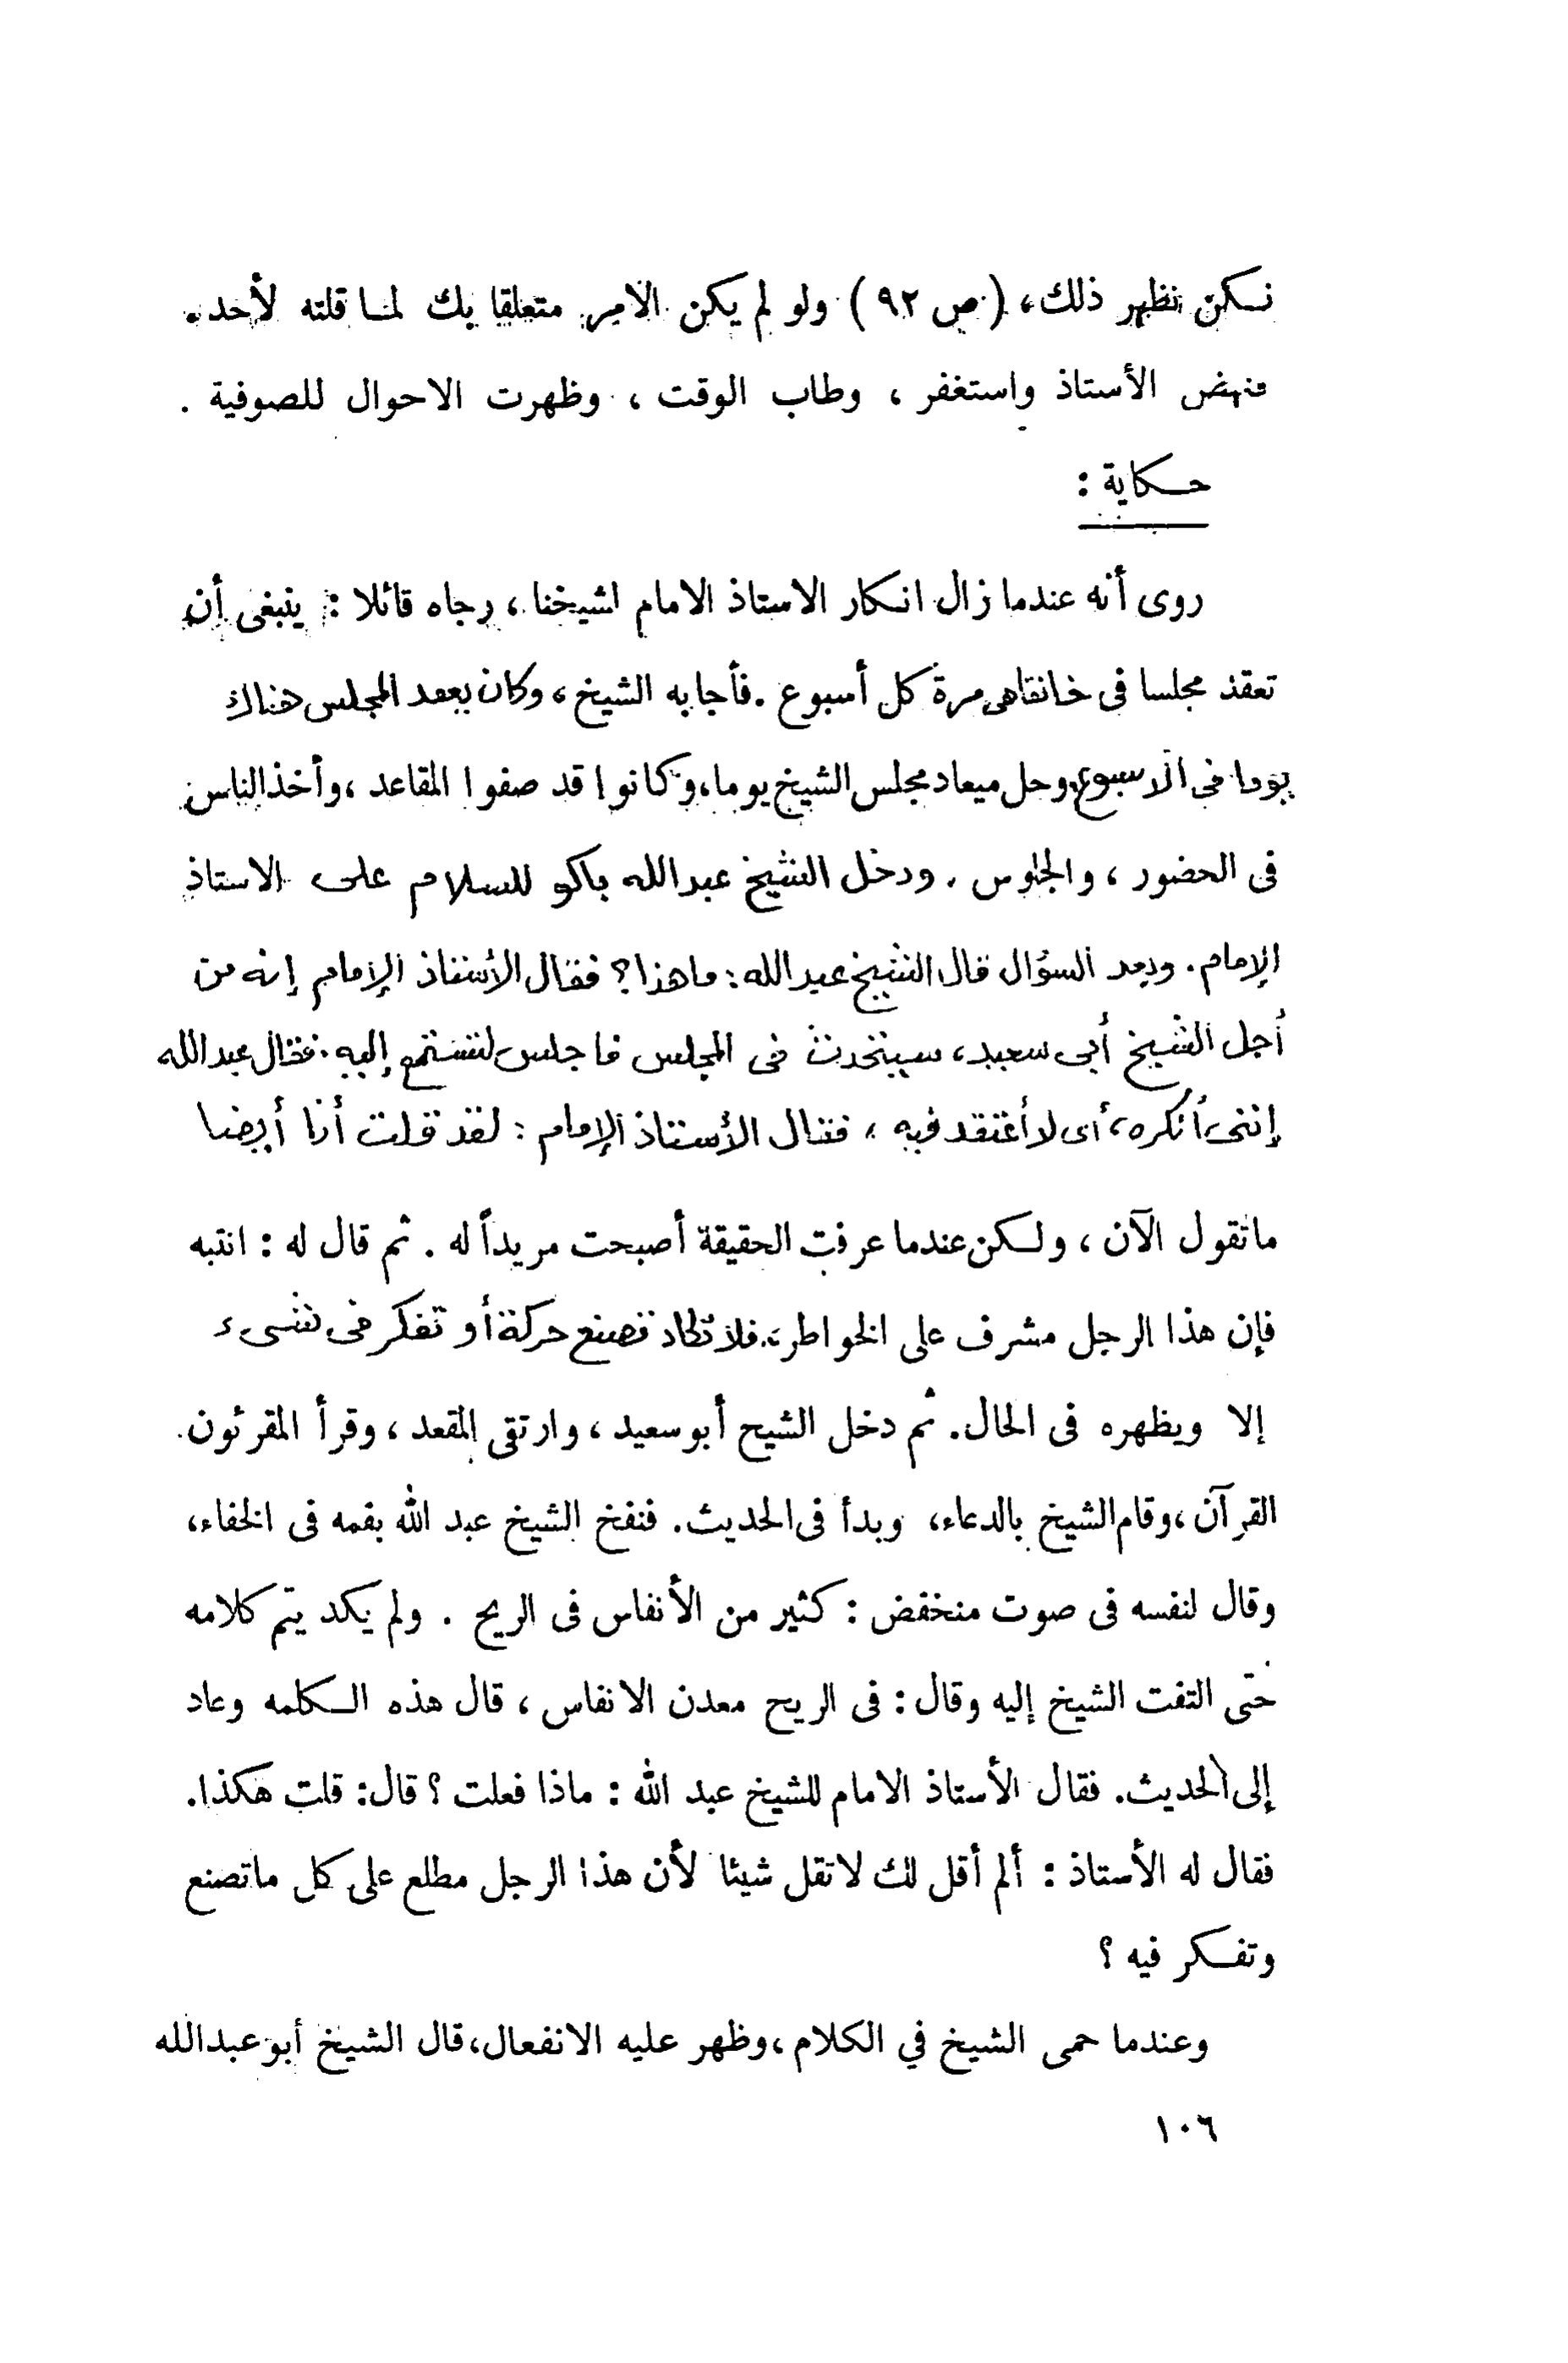 نكن نظهر ذلك، (ص ٩٢) ولو لم يكن الامر متعلقا بك لما قلته لأحد.
فنهض الأستاذ واستغفر ، وطاب الوقت ، وظهرت الاحوال للصوفية .
حكاية :
روى أنه عندما زال انكار الاستاذ الامام لشيخنا ، رجاه قائلا : ينبغى أن
تعقد مجلسا فى خانقاهى مرة كل أسبوع . فأجابه الشيخ ، وكان يعقد المجلس هناك
يوما فى الاسبوع وحل ميعاد مجلس الشيخ يوما، وكانوا قد صفوا المقاعد ، وأخذ الناس
فى الحضور ، والجلوس . ودخل الشيخ عبدالله باكو للسلام على الاستاذ
الإمام. وبعد السؤال قال الشيخ عبدالله : ماهذا؟ فقال الأستاذ الإمام إنه من
أجل الشيخ أبى سعيد، سيتحدث فى المجلس فاجلس لتستمع إليه. فقال عبدالله
إننى أنكره، أى لا أعتقد فيه ، فقال الأستاذ الإمام : لقد قلت أنا أيضا
ماتقول الآن ، ولكن عندما عرفت الحقيقة أصبحت مريداً له . ثم قال له : انتبه
فإن هذا الرجل مشرف على الخواطر، فلا تكاد تصنع حركة أو تفكر فى شىء
إلا ويظهره فى الحال. ثم دخل الشيح أبو سعيد ، وارتقى المقعد ، وقرأ المقرئون
القرآن ، وقام الشيخ بالدعاء، وبدأ فى الحديث. فنفخ الشيخ عبد الله بفمه فى الخفاء،
وقال لنفسه فى صوت منخفض : كثير من الأنفاس فى الريح . ولم يكد يتم كلامه
حتى التفت الشيخ إليه وقال : فى الريح معدن الانفاس ، قال هذه الكلمه وعاد
إلى الحديث. فقال الأستاذ الامام للشيخ عبد الله : ماذا فعلت ؟ قال: قلت هكذا.
فقال له الأستاذ : ألم أقل لك لاتقل شيئا لأن هذا الرجل مطلع على كل ماتصنع
وتفكر فيه ؟
وعندما حمى الشيخ في الكلام ، وظهر عليه الانفعال، قال الشيخ أبو عبدالله
١٠٦